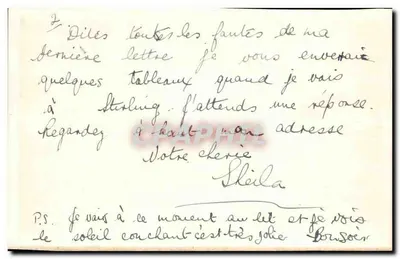 2
Dites toutes les fautes de ma
dernière lettre je vous enverai
quelques tableaux quand je vais
à Sterling. J'attends une réponse.
Regardez à haut mon adresse
Votre cherie
Sheila
P.S. Je vais à ce moment au lit et je vois
le soleil couchant c'est très jolie Bonsoir